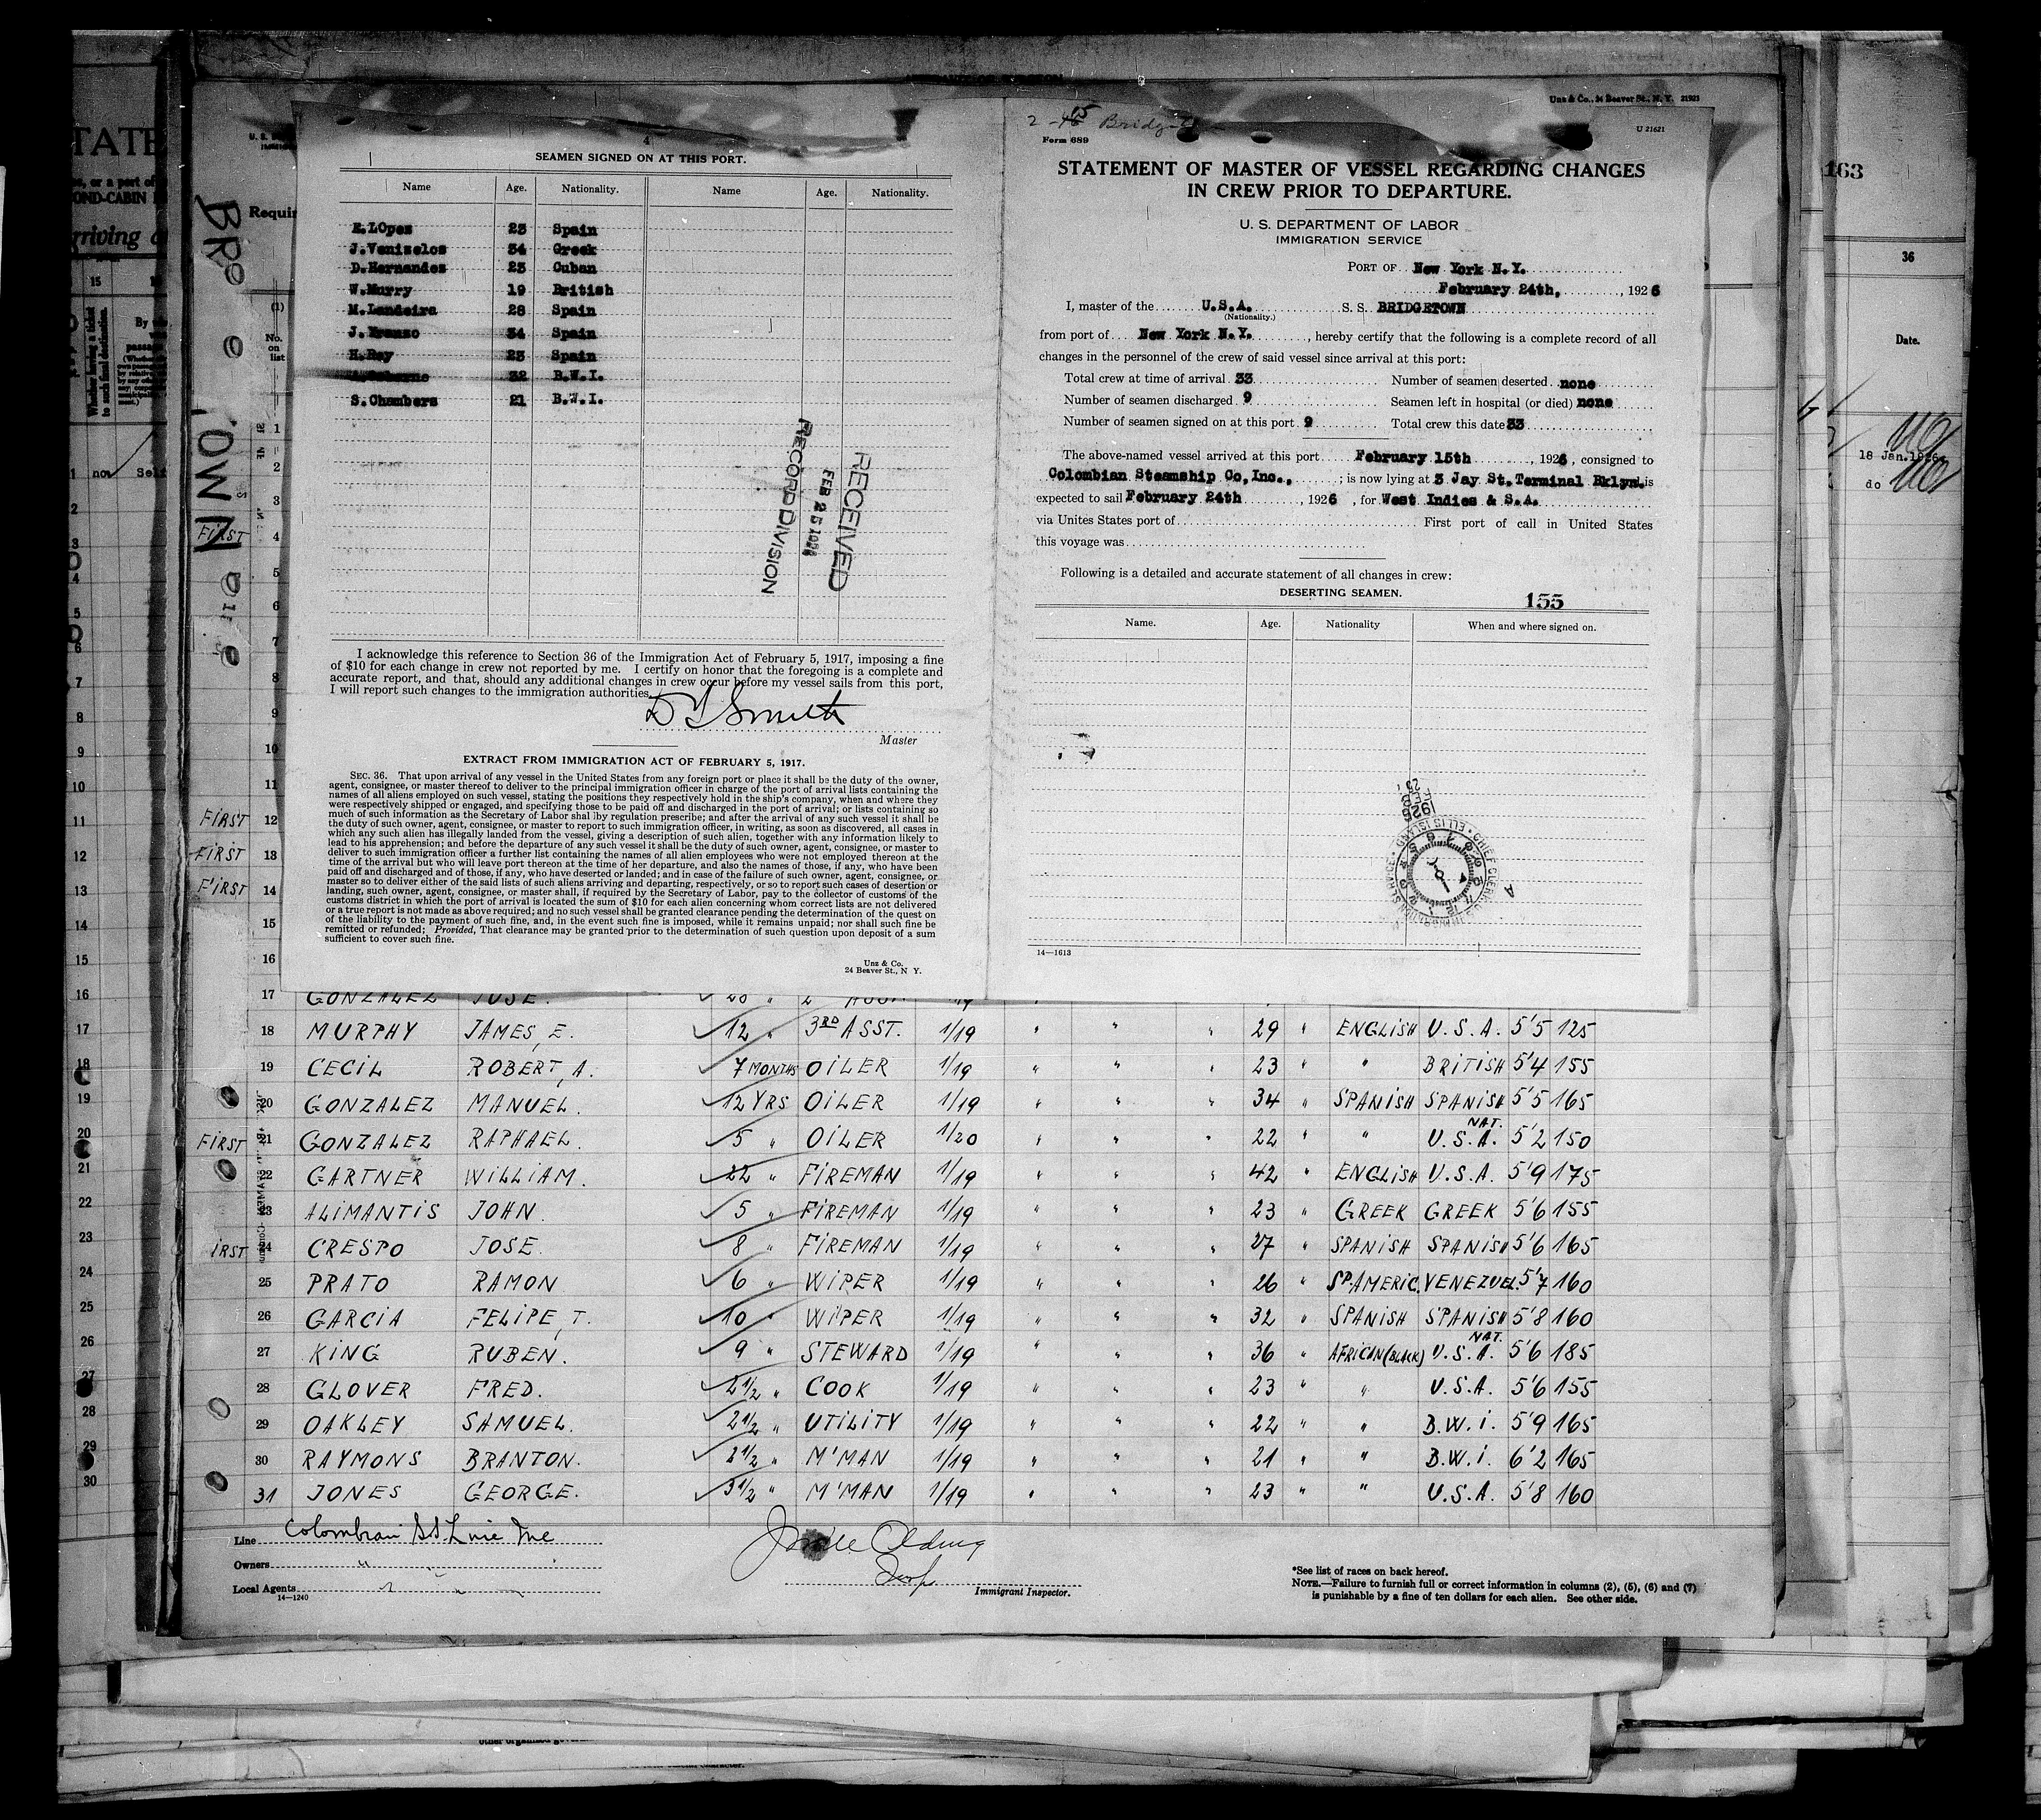 Unz & Co., 24 Beaver St., N. Y. 21923
4
SEAMEN SIGNED ON AT THIS PORT.
Name Age. Nationality. Name Age. Nationality.
E.LOpes 23 Spain
J.Venizelos 34 Greek
D.Hernandes 23 Cuban
W.Murry 19 British
M.Landeira 28 Spain
34 Spain
H.Rey 23 Spain
32 B.W.I.
S.Chambers 21 B.W.I.
RECEIVED
FEB 25 1926
RECORD DIVISION
I acknowledge this reference to Section 36 of the Immigration Act of February 5, 1917, imposing a fine
of $10 for each change in crew not reported by me. I certify on honor that the foregoing is a complete and
accurate report, and that, should any additional changes in crew occur before my vessel sails from this port,
I will report such changes to the immigration authorities.
Smith
Master
EXTRACT FROM IMMIGRATION ACT OF FEBRUARY 5, 1917.
SEC. 36. That upon arrival of any vessel in the United States from any foreign port or place it shall be the duty of the owner,
agent, consignee, or master thereof to deliver to the principal immigration officer in charge of the port of arrival lists containing the
names of all aliens employed on such vessel, stating the positions they respectively hold in the ship's company, when and where they
were respectively shipped or engaged, and specifying those to be paid off and discharged in the port of arrival; or lists containing so
much of such information as the Secretary of Labor shal lby regulation prescribe; and after the arrival of any such vessel it shall be
the duty of such owner, agent, consignee, or master to report to such immigration officer, in writing, as soon as discovered, all cases in
which any such alien has illegally landed from the vessel, giving a description of such alien, together with any information likely to
lead to his apprehension; and before the departure of any such vessel it shall be the duty of such owner, agent, consignee, or master to
deliver to such immigration officer a further list containing the names of all alien employees who were not employed thereon at the
time of the arrival but who will leave port thereon at the time of her departure, and also the names of those, if any, who have been
paid off and discharged and of those, if any, who have deserted or landed; and in case of the failure of such owner, agent, consignee, or
master so to deliver either of the said lists of such aliens arriving and departing, respectively, or so to report such cases of desertion or
landing, such owner, agent, consignee, or master shall, if required by the Secretary of Labor, pay to the collector of customs of the
customs district in which the port of arrival is located the sum of $10 for each alien concerning whom correct lists are not delivered
or a true report is not made as above required; and no such vessel shall be granted clearance pending the determination of the quest on
of the liability to the payment of such fine, and, in the event such fine is imposed, while it remains unpaid; nor shall such fine be
remitted or refunded; Provided, That clearance may be granted prior to the determination of such question upon deposit of a sum
sufficient to cover such fine.
Unz & Co.
24 Beaver St., N Y.
Form 689
U 21621
STATEMENT OF MASTER OF VESSEL REGARDING CHANGES
IN CREW PRIOR TO DEPARTURE.
U. S. DEPARTMENT OF LABOR
IMMIGRATION SERVICE
PORT OF New York N.Y.
February 24th, , 1926
I, master of the U.S.A. S. S. BRIDGETOWN
(Nationality.)
from port of New York N.Y. , hereby certify that the following is a complete record of all
changes in the personnel of the crew of said vessel since arrival at this port:
Total crew at time of arrival 33 Number of seamen deserted none
Number of seamen discharged 9 Seamen left in hospital (or died) none
Number of seamen signed on at this port 9 Total crew this date 33
The above-named vessel arrived at this port February 15th , 1926, consigned to
Colombian Steamship Co,Inc., ; is now lying at 3 Jay St.Terminal Bklyn. is
expected to sail February 24th , 1926, for West Indies & S.A.
via Unites States port of First port of call in United States
this voyage was
Following is a detailed and accurate statement of all changes in crew:
DESERTING SEAMEN. 155
Name. Age. Nationality When and where signed on.
14—1613
17 GONZALEZ JOSE
18 MURPHY JAMES, E. 12 " 3RD ASST. 1/19 " " " 29 " ENGLISH U.S.A. 5'5 125
19 CECIL ROBERT, A. 7 MONTHS OILER 1/19 " " " 23 " " BRITISH 5'4 155
20 GONZALEZ MANUEL. 12 YRS OILER 1/19 " " " 34 " SPANISH SPANISH 5'5 165
FIRST 21 GONZALEZ RAPHAEL. 5 " OILER 1/20 " " " 22 " " NAT. U.S.A. 5'2 150
22 GARTNER WILLIAM. 22 " FIREMAN 1/19 " " " 42 " ENGLISH U.S.A. 5'9 175
23 ALIMANTIS JOHN. 5 " FIREMAN 1/19 " " " 23 " GREEK GREEK 5'6 155
IRST 24 CRESPO JOSE. 8 " FIREMAN 1/19 " " " 27 " SPANISH SPANISH 5'6 165
25 PRATO RAMON 6 " WIPER 1/19 " " " 26 " SP.AMERIC. VENEZUEL. 5'7 160
26 GARCIA FELIPE, T. 10 " WIPER 1/19 " " " 32 " SPANISH SPANISH 5'8 160
27 KING RUBEN. 9 " STEWARD 1/19 " " " 36 " AFRICAN (BLACK) NAT. U.S.A. 5'6 185
28 GLOVER FRED. 2 1/2 " COOK 1/19 " " " 23 " " U.S.A. 5'6 155
29 OAKLEY SAMUEL. 2 1/2 " UTILITY 1/19 " " " 22 " " B.W.I. 5'9 165
30 RAYMONS BRANTON. 2 1/2 " M'MAN 1/19 " " " 21 " " B.W.I. 6'2 165
31 JONES GEORGE. 3 1/2 " M'MAN 1/19 " " " 23 " " U.S.A. 5'8 160
Line Colombian S.S. Line Inc
Owners " " "
Local Agents
14—1240
Immigrant Inspector.
*See list of races on back hereof.
NOTE.—Failure to furnish full or correct information in columns (2), (5), (6) and (7)
is punishable by a fine of ten dollars for each alien. See other side.
163
36
Date.
18 Jan. 1926
do